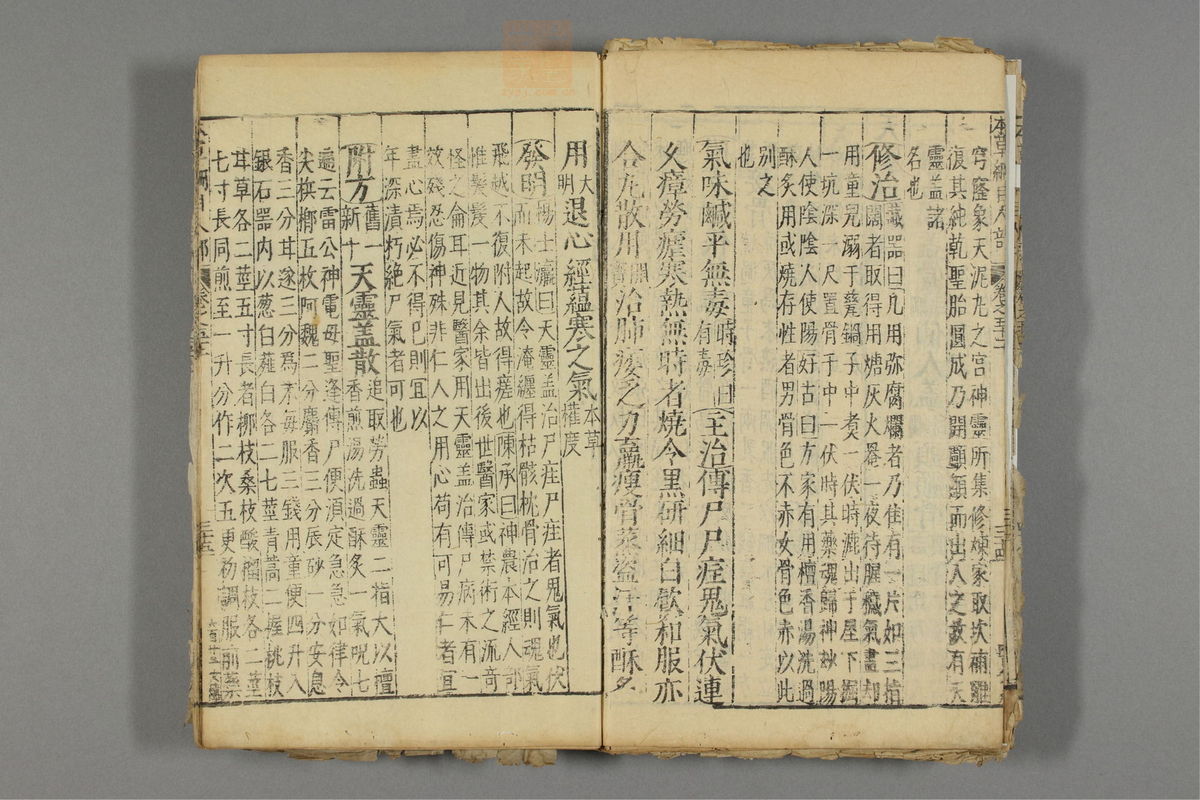 本草綱目人部 卷之五十二
穹窿象天泥丸之宮神靈所集修煉家取坎補離
復其純乾聖胎圓成乃開顱顖而出入之故有天
靈蓋諸
名也
修治藏器曰凡用弥腐爛者乃佳有一片如三指
闊者取得用糖灰火罨一夜待腥穢氣盡却
用童兒溺于甆鍋子中煑一伏時漉出于屋下掘
一坑深一尺置骨于中一伏時其藥魂歸神妙陽
人使陰陰人使陽好古曰方家有用檀香湯洗過
酥炙用或燒存性者男骨色不赤女骨色赤以此
別之
也
氣味鹹平無毒時珍曰有毒主治傳尸尸疰鬼氣伏連
久瘴勞瘧寒熱無時者燒令黑研細白飲和服亦
合丸散用開寶治肺痿乏力羸瘦骨蒸盜汗等酥炙
用大明退心經蘊寒之氣本草權度
發明楊士瀛曰天靈盖治尸疰尸疰者鬼氣也伏
而未起故令淹纏得枯骸枕骨治之則魂氣
飛越不復附人故得瘥也陳承曰神農本經人部
惟髮髲一物其余皆出後世醫家或禁術之流奇
怪之倫耳近見醫家用天靈盖治傳尸病未有一
效殘忍傷神殊非仁人之用心苟有可易仁者宜
盡心焉必不得已則宜以
年深漬朽絕尸氣者可也
附方舊一新十天靈盖散追取勞蟲天靈二指大以檀
香煎湯洗過酥炙一氣呪七
遍云雷公神電母聖逢傳尸便須定急急如律令
尖檳榔五枚阿魏二分麝香三分辰砂一分安息
香三分甘遂三分爲末每服三錢用童便四升入
銀石器内以葱白薤白各二七莖青蒿二握桃枝
甘草各二莖五寸長者柳枝桑枝酸榴枝各二莖
七寸長同煎至一升分作二次五更初調服前藥